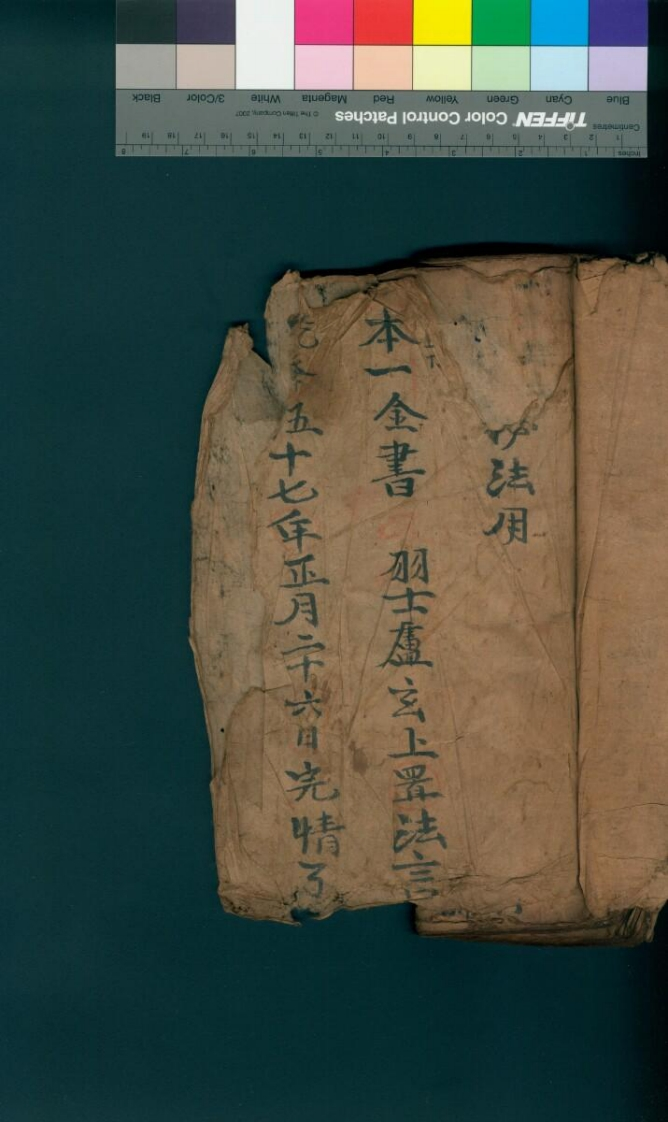 法用
本一金書 羽士盧玄上置法言
五十七年正月二十六日完情了
Blue Cyan Green Yellow Red Magenta White 3/Color Black
TIFFEN Color Control Patches © The Tiffen Company, 2007
Centimetres 1 2 3 4 5 6 7 8 9 10 11 12 13 14 15 16 17 18 19
Inches 1 2 3 4 5 6 7 8